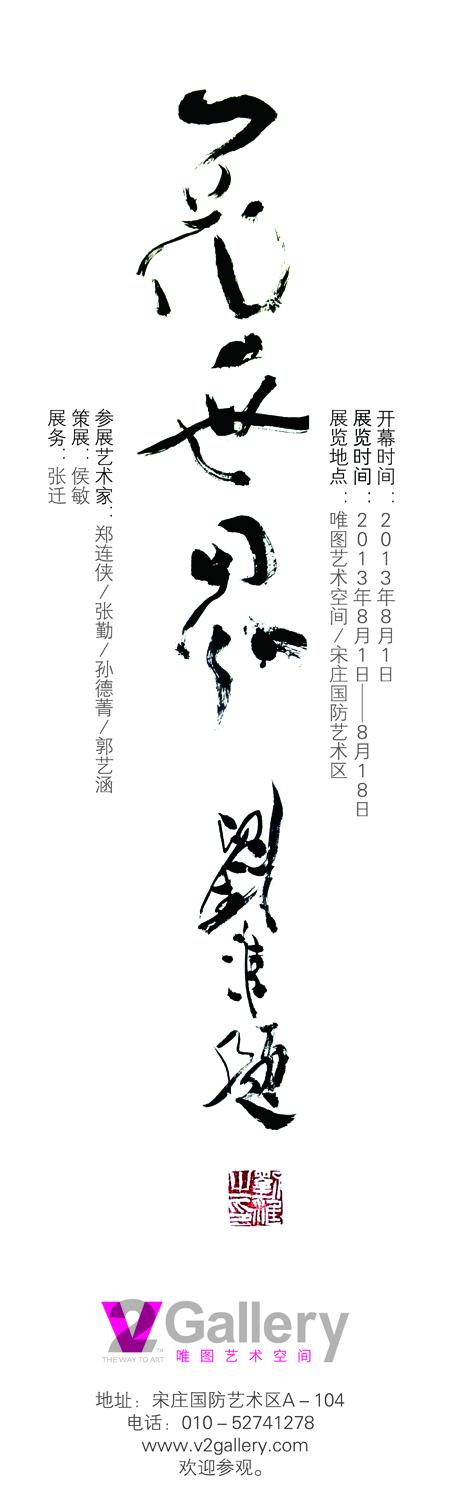 开幕时间：2013年8月1日
展览时间：2013年8月1日——8月18日
展览地点：唯图艺术空间/宋庄国防艺术区
花世界
劉 題
参展艺术家：郑连侠/张勤/孙德菁/郭艺涵
策展：侯敏
展务：张迁
V2 Gallery
THE WAY TO ART ™ 唯图艺术空间
地址：宋庄国防艺术区A－104
电话：010－52741278
www.v2gallery.com
欢迎参观。